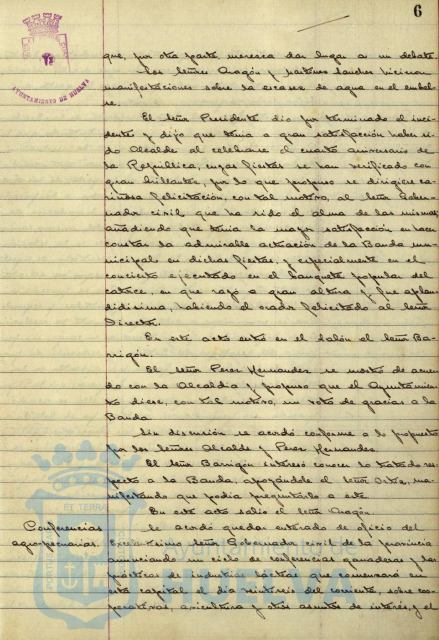 6
AYUNTAMIENTO DE HUELVA
que, por otra parte, merezca dar lugar a un debate.
Los Señores Aragón y Martínez Sánchez hicieron
manifestaciones sobre la escasez de agua en el embal
se.
El Señor Presidente dio por terminado el inci
dente y dijo que tenía a gran satisfacción haber si
do Alcalde al celebrarse el cuarto aniversario de
la República, cuyas fiestas se han verificado con
gran brillantez, por lo que propuso se dirigiese ca
riñosa felicitación, con tal motivo, al Señor Gober
nador civil que ha sido el alma de las mismas,
añadiendo que tenía la mayor satisfacción en hacer
constar la admirable actuación de la Banda mu
nicipal en dichas fiestas, y especialmente en el
concierto ejecutado en el banquete popular del
catorce, en que rayó a gran altura y fue aplau
didísima, habiendo el orador felicitado al Señor
Director.
En este acto entró en el Salón el Señor Ba-
rrigón.
El Señor Perez Hernandez se mostró de acuer
do con la Alcaldía y propuso que el Ayuntamien
to diese, con tal motivo, un voto de gracias a la
Banda.
Sin discusión se acordó conforme a lo propuesto
por los Señores Alcalde y Perez Hernandez.
El Señor Barrigón interesó conocer lo tratado res
pecto a la Banda, apoyándole el Señor Ortiz, ma
nifestando que podía preguntarlo a este.
En este acto salió el Señor Aragón.
Conferencias
agropecuarias.
Se acordó quedar enterado de oficio del
Excelentísimo Señor Gobernador civil de la provincia
anunciando un ciclo de conferencias ganaderas y las
prácticas de industrias lácteas que comenzará en
esta capital el día veintiseis del corriente, sobre coo
perativas, avicultura y otros asuntos de interés, y el